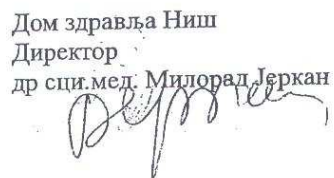 Дом здравља Ниш
Директор
др сци.мед. Милорад Јеркан